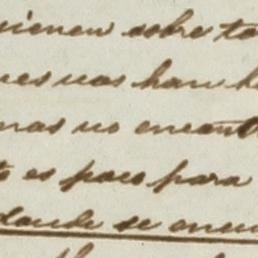 uienen sobre ta
nes nos han h
mas no encont
to es poco para
donde se encu